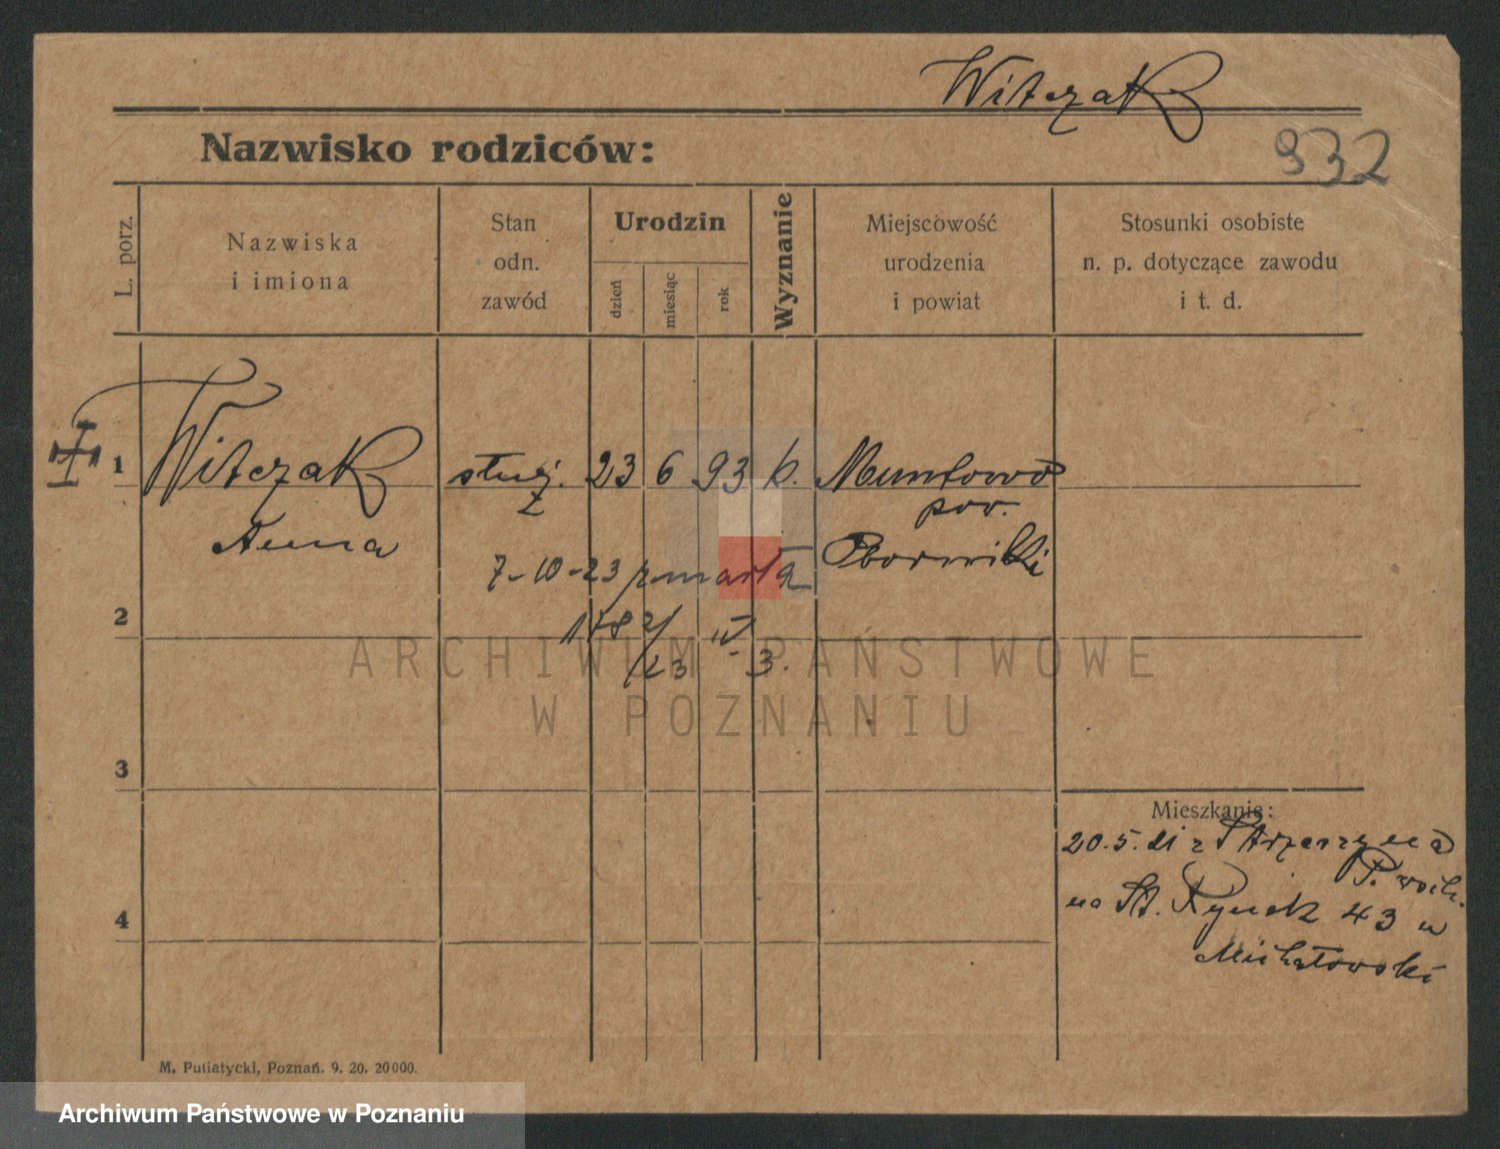 Witczak
Nazwisko rodziców:
932
L. porz.
Nazwiska
i imiona
Stan
odn.
zawód
Urodzin
dzień
miesiąc
rok
Wyznanie
Miejscowość
urodzenia
i powiat
Stosunki osobiste
n. p. dotyczące zawodu
i t. d.
1 Witczak służ. 23 6 93 k. Muntowo
pow.
Anna Oborniki
7-10-23 zmarła
2
1782/23 IV 3.
ARCHIWUM PAŃSTWOWE
W POZNANIU
3
Mieszkanie:
20.5.21 z Strzeszyna
P. wsch.
na St. Rynek 43 u
Michałowski
4
M. Putiatycki, Poznań. 9. 20. 20000.
Archiwum Państwowe w Poznaniu